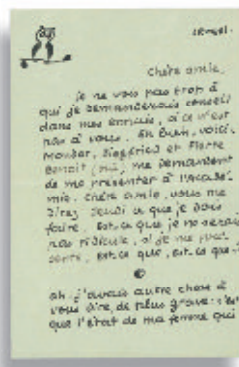 Chère amie,
je ne vois pas trop à
qui je demanderais conseil
dans mes ennuis, si ce n'est
pas à vous. Eh bien, voici.
Mondor, Siegfried et Pierre
Benoit (sic) me demandent
de me présenter à l'Acadé-
mie. Chère amie, vous me
direz jeudi ce que je dois
faire. Est-ce que je ne serais
pas ridicule, si je me pré-
sente, est-ce que, est-ce que
ah j'avais autre chose à
vous dire, de plus grave: c'est
que l'état de ma femme qui